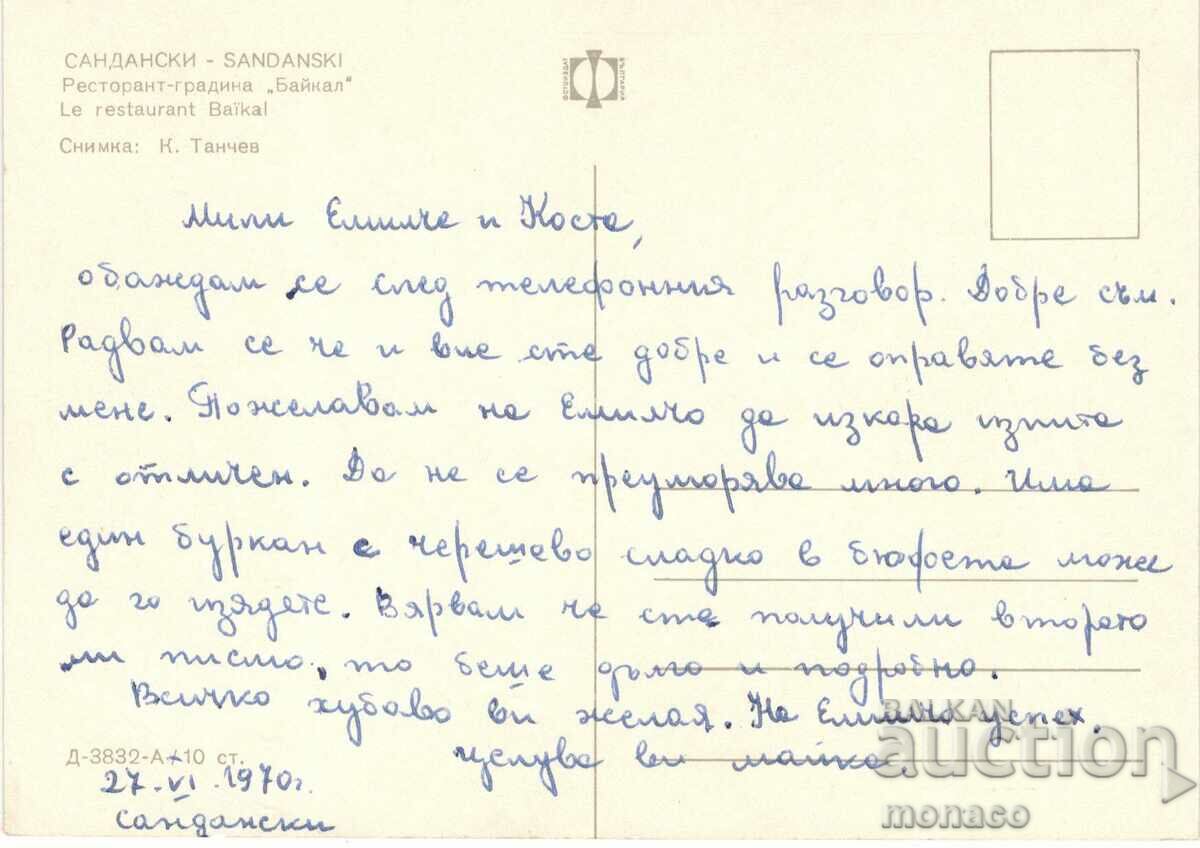 САНДАНСКИ - SANDANSKI
Ресторант-градина „Байкал"
Le restaurant Baïkal
Снимка: К. Танчев
ФОТОИЗДАТ
БЪЛГАРИЯ
Мили Емилче и Коста,
обаждам се след телефонния разговор. Добре съм.
Радвам се че и вие сте добре и се оправяте без
мене. Пожелавам на Емилчо да изкара изпита
с отличен. Да не се преуморява много. Има
един буркан с черешево сладко в бюфета може
да го изядете. Вярвам че сте получили второто
ми писмо, то беше дълго и подробно.
Всичко хубаво ви желая. На Емилчо успех.
Целува ви майка.
Д-3832-А 10 ст.
27.VI.1970г.
Сандански
BALKAN
auction
monaco